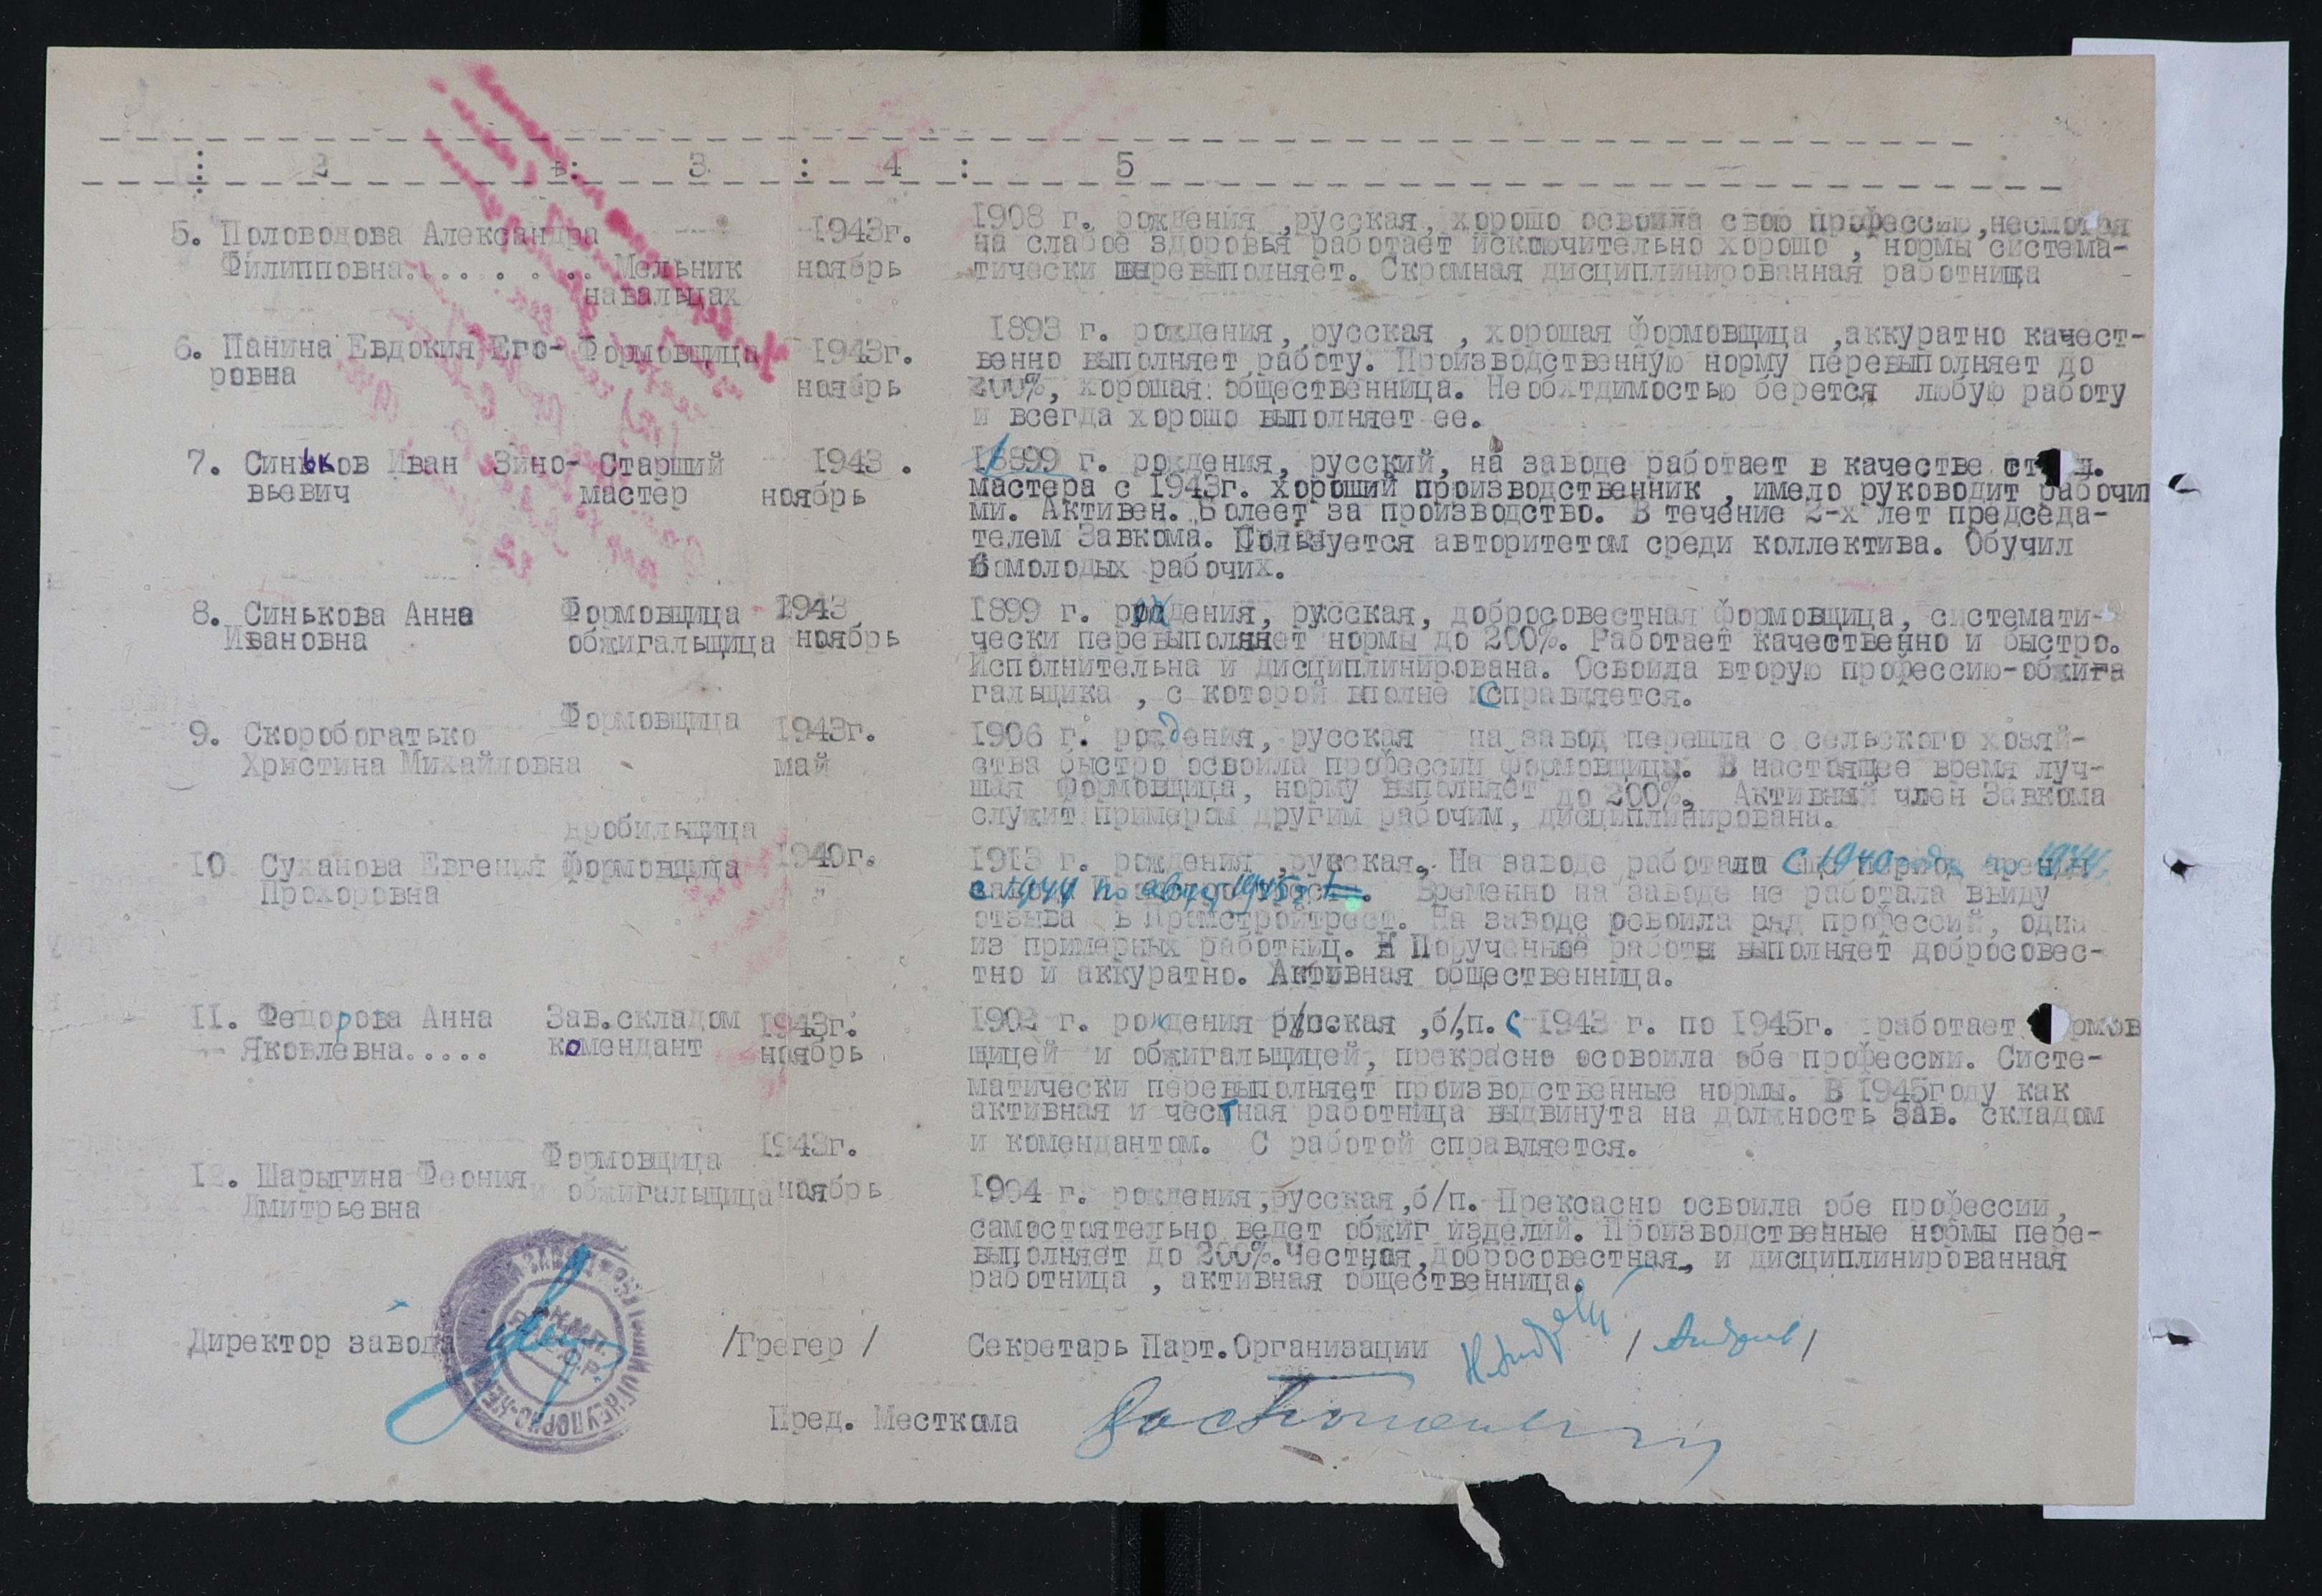 : 2 в: 3 : 4 : 5
5. Половодова Александра
Филипповна........ Мельник
навальцах
1943г.
ноябрь
1908 г. рождения ,русская, хорошо освоила свою профессию,несмотря
на слабое здоровья работает исключительно хорошо , нормы система-
тически перевыполняет. Скромная дисциплинированная работница
6. Панина Евдокия Его-
ровна
Формовщица
1943г.
ноябрь
1893 г. рождения, русская , хорошая формовщица ,аккуратно качест-
венно выполняет работу. Производственную норму перевыполняет до
200%, хорошая общественница. Необхтдимостью берется любую работу
и всегда хорошо выполняет ее.
7. Синьков Иван Зино-
вьевич
Старший
мастер
1943 .
ноябрь
1899 г. рождения, русский, на заводе работает в качестве
мастера с 1943г. хороший производственник , имело руководит рабочи
ми. Активен. Болеет за производство. В течение 2-х лет председа-
телем Завкома. Пользуется авторитетом среди коллектива. Обучил
6 молодых рабочих.
8. Синькова Анна
Ивановна
Формовщица
обжигальщица
1943
ноябрь
1899 г. рождения, русская, добросовестная формовщица, системати-
чески перевыполняет нормы до 200%. Работает качественно и быстро.
Исполнительна и дисциплинирована. Освоила вторую профессию-обжига
гальщика , с которой вполне справляется.
9. Скоробогатько
Христина Михайловна
Формовщица
1943г.
май
1906 г. рождения, русская на завод перешла с сельского хозяй-
ства быстро освоила профессии формовщицы. В настоящее время луч-
шая формовщица, норму выполняет до 200%. Активный член Завкома
служит примером другим рабочим, дисциплинирована.
10 Суханова Евгения
Прохоровна
дробильщица
Формовщица
1940г.
"
1913 г. рождения ,русская. На заводе работала с 1940 по 1944,
с 1944 по 1945г. Временно на заводе не работала ввиду
отзыва в Промстройтрест. На заводе освоила ряд профессий, одна
из примерных работниц. Порученные работы выполняет добросовес-
тно и аккуратно. Активная общественница.
11. Федорова Анна
Яковлевна.....
Зав.складом
комендант
1943г.
ноябрь
1902 г. рождения русская ,б/п. с 1943 г. по 1945г. работает
щицей и обжигальщицей, прекрасно осовоила обе профессии. Систе-
матически перевыполняет производственные нормы. В 1945году как
активная и честная работница выдвинута на должность зав. складом
и комендантом. С работой справляется.
12. Шарыгина Феония
Дмитрьевна
Формовщица
и обжигальщица
1943г.
ноябрь
1904 г. рождения,русская,б/п. Прексасно освоила обе профессии,
самостоятельно ведет обжиг изделий. Производственные нормы пере-
выполняет до 200%.Честная,добросовестная, и дисциплинированная
работница , активная общественница.
Директор завода /Грегер / Секретарь Парт.Организации
Пред. Месткома